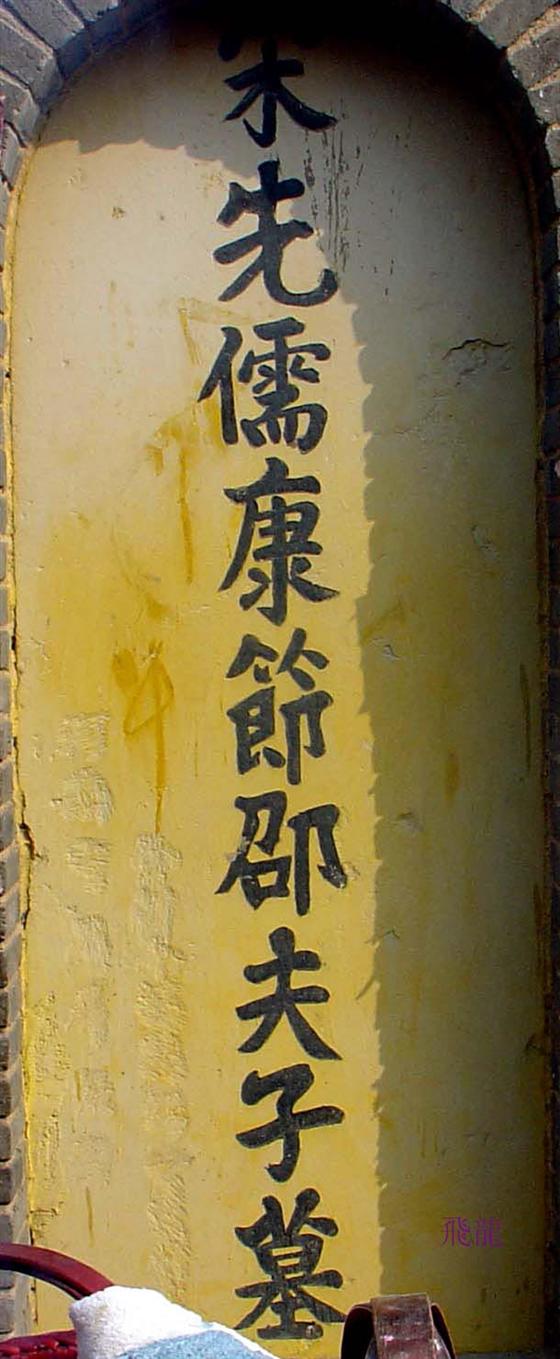 宋先儒康節邵夫子墓
飛龍